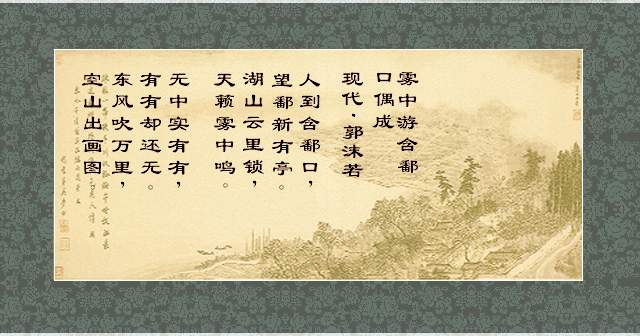 雾中游含鄱
口偶成
现代·郭沫若
人到含鄱口，
望鄱新有亭。
湖山云里锁，
天籁雾中鸣。
无中实有有，
有有却还无。
东风吹万里，
空山出画图